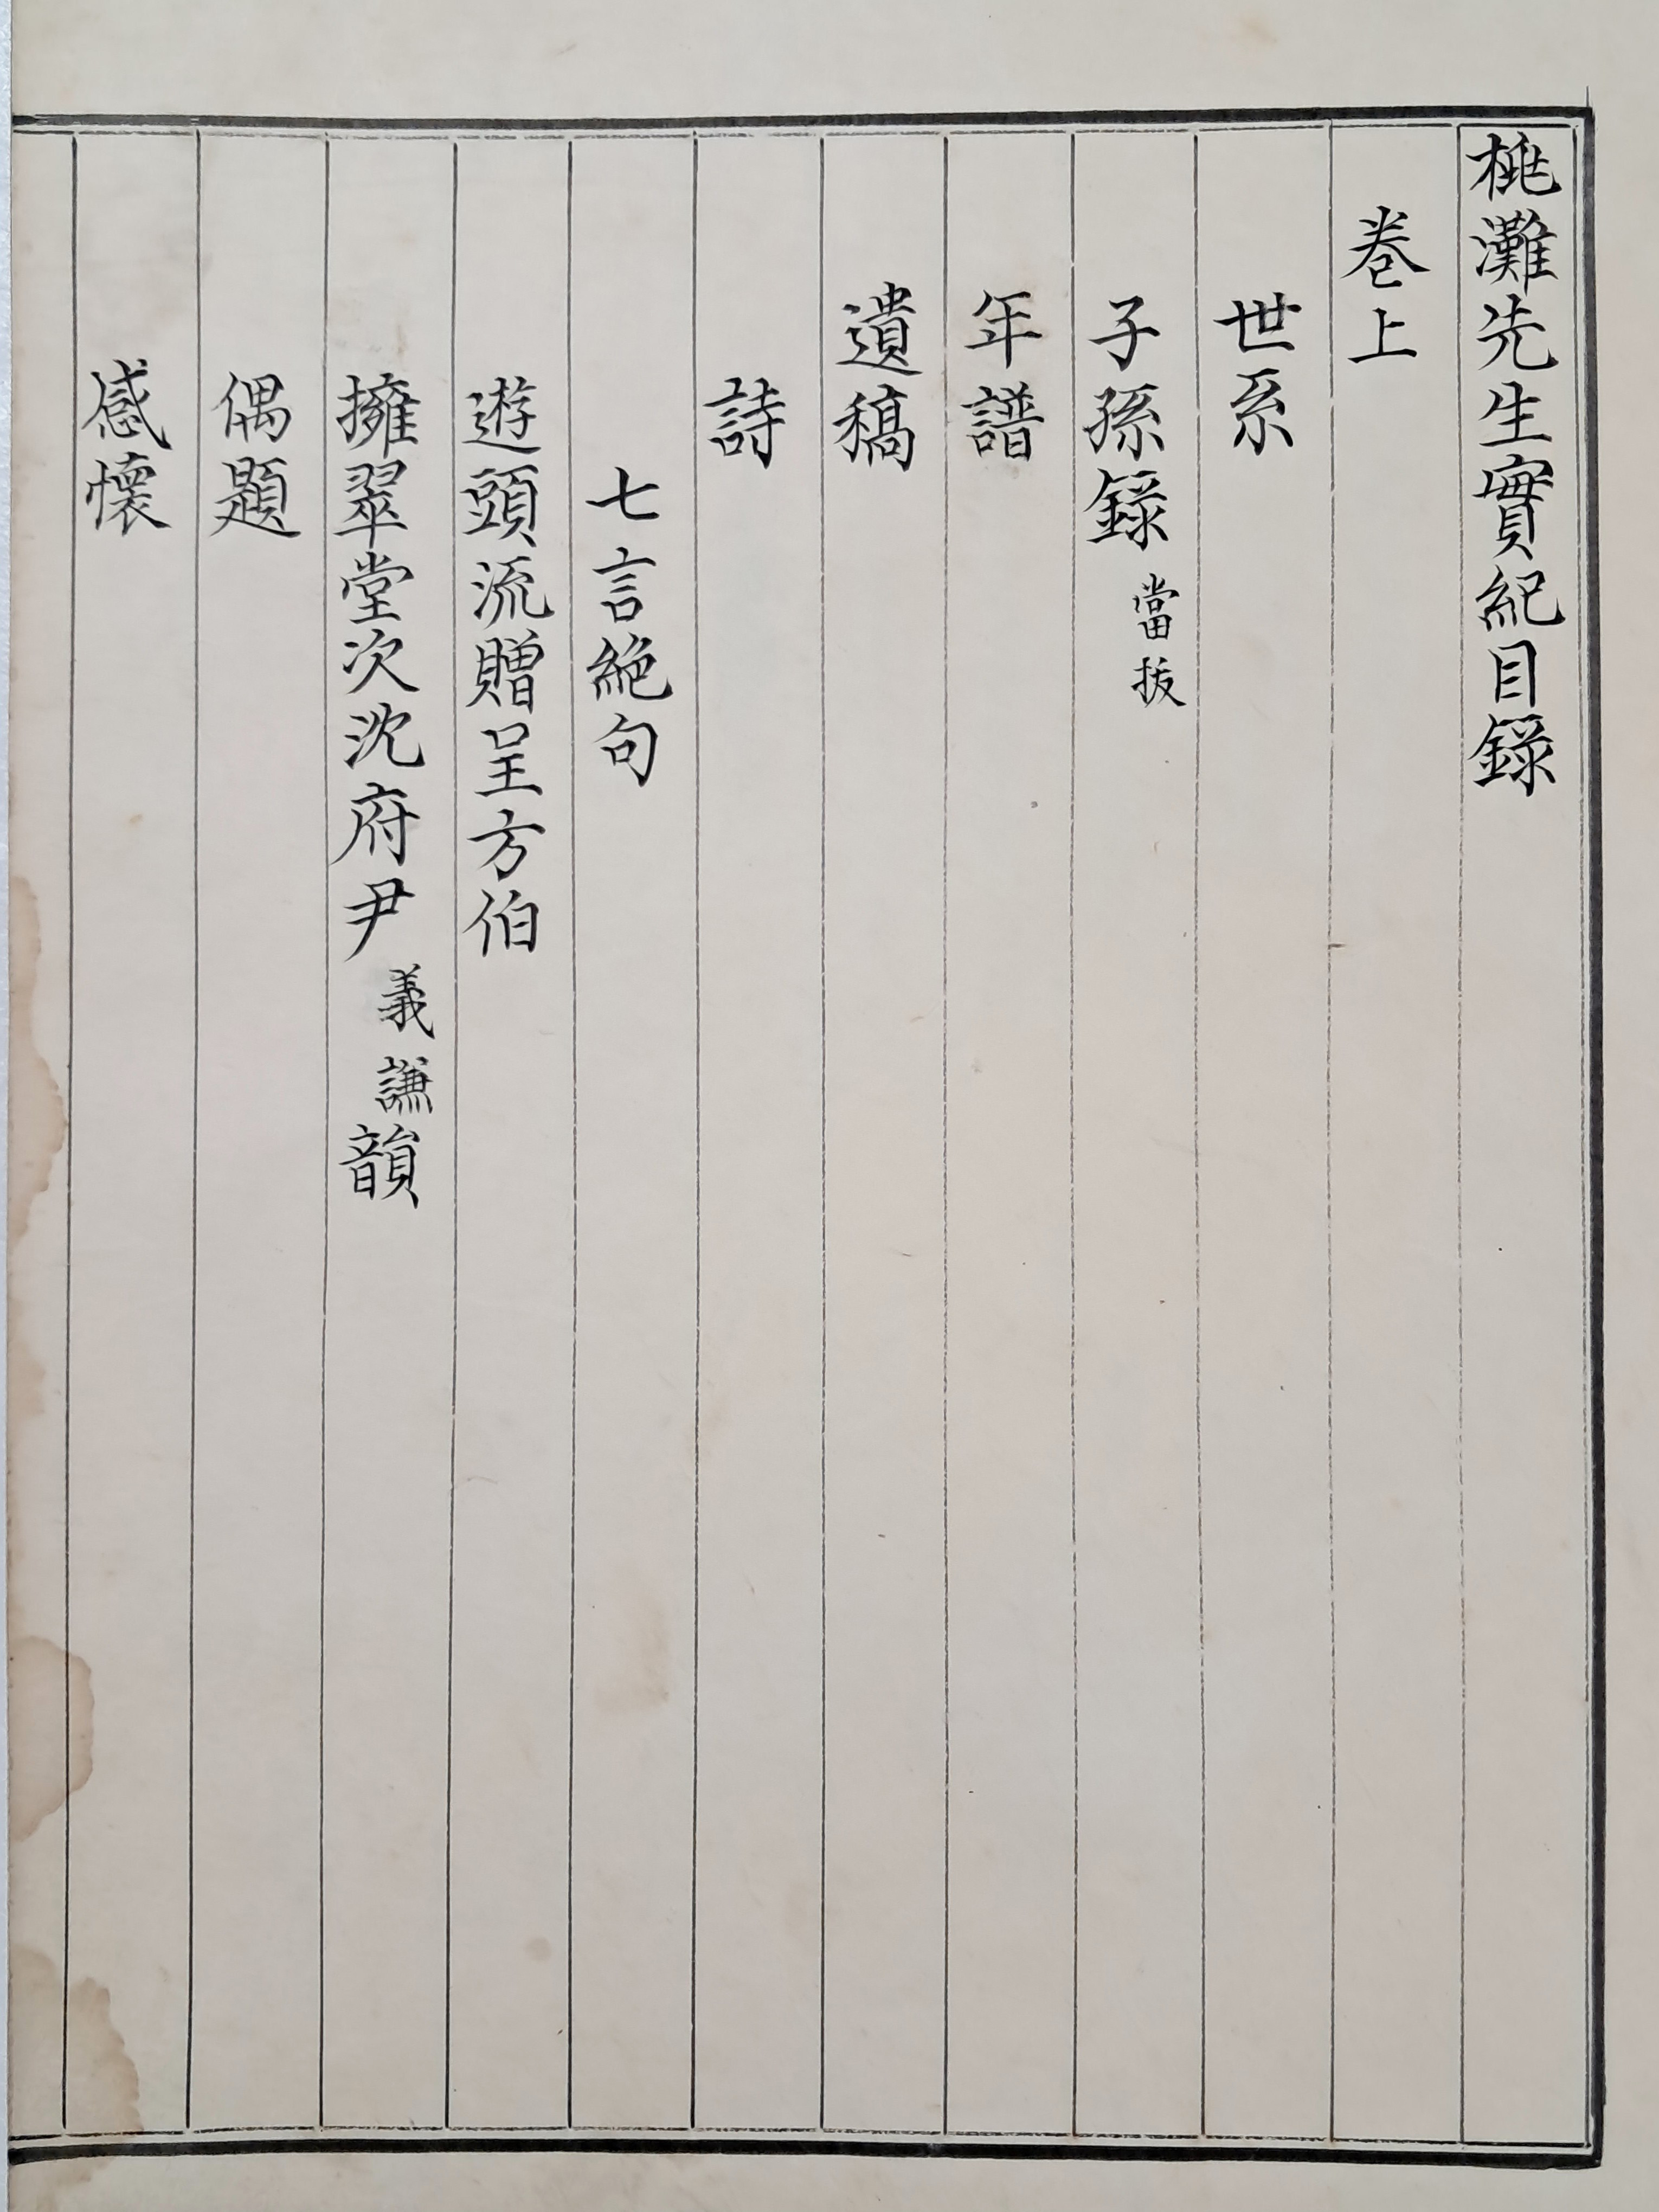 桃灘先生實紀目錄
卷上
世系
子孫錄 當拔
年譜
遺稿
詩
七言絕句
遊頭流贈呈方伯
擁翠堂次沈府尹 義謙 韻
偶題
感懷